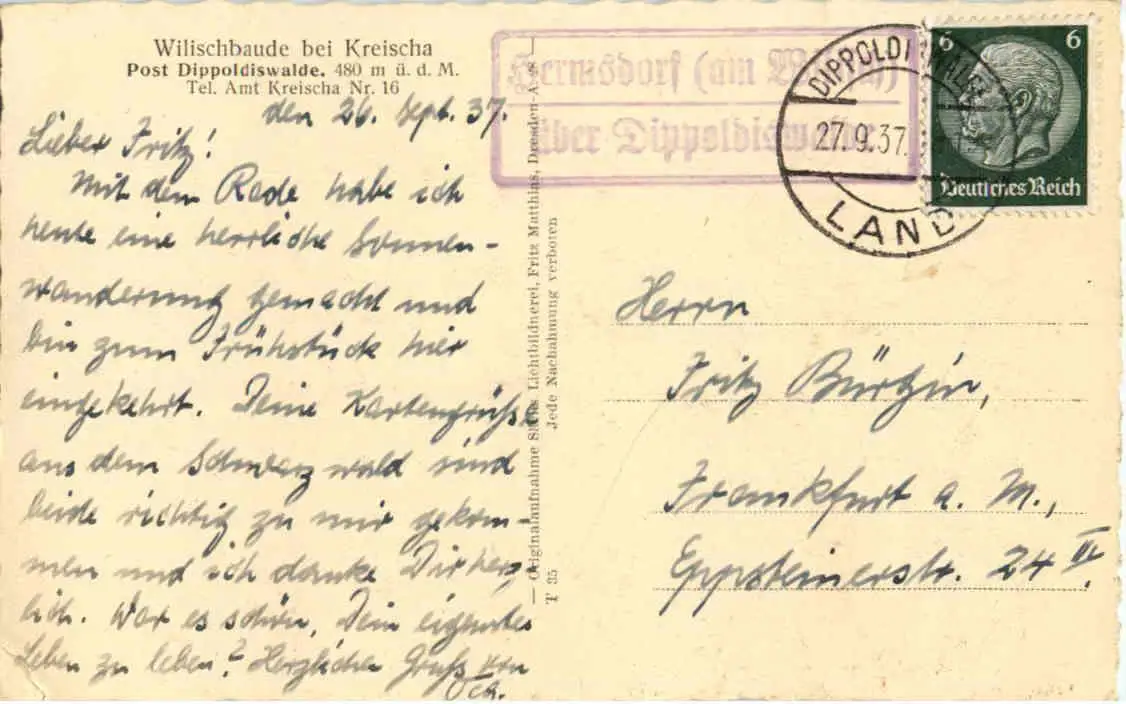 Wilischbaude bei Kreischa
Post Dippoldiswalde. 480 m ü. d. M.
Tel. Amt Kreischa Nr. 16
den 26. Sept. 37.
Lieber Fritz!
Mit dem Rade habe ich
heute eine herrliche Sonnen-
wanderung gemacht und
bin zum Frühstück hier
eingekehrt. Deine Kartengrüße
aus dem Schwarzwald sind
beide richtig zu mir gekom-
men und ich danke Dir herz-
lich. War es schön, Dein eigenes
Leben zu leben? Herzlichen Gruß von
— Originalaufnahme Sächs. Lichtbildnerei, Fritz Matthias, Dresden-A 8 —
Jede Nachahmung verboten
T 35
Hermsdorf (am Wilisch)
über Dippoldiswalde
DIPPOLDISWALDE
27.9.37.
LAND
6 6
Deutsches Reich
Herrn
Fritz Bürgin,
Frankfurt a. M.,
Eppsteinerstr. 24